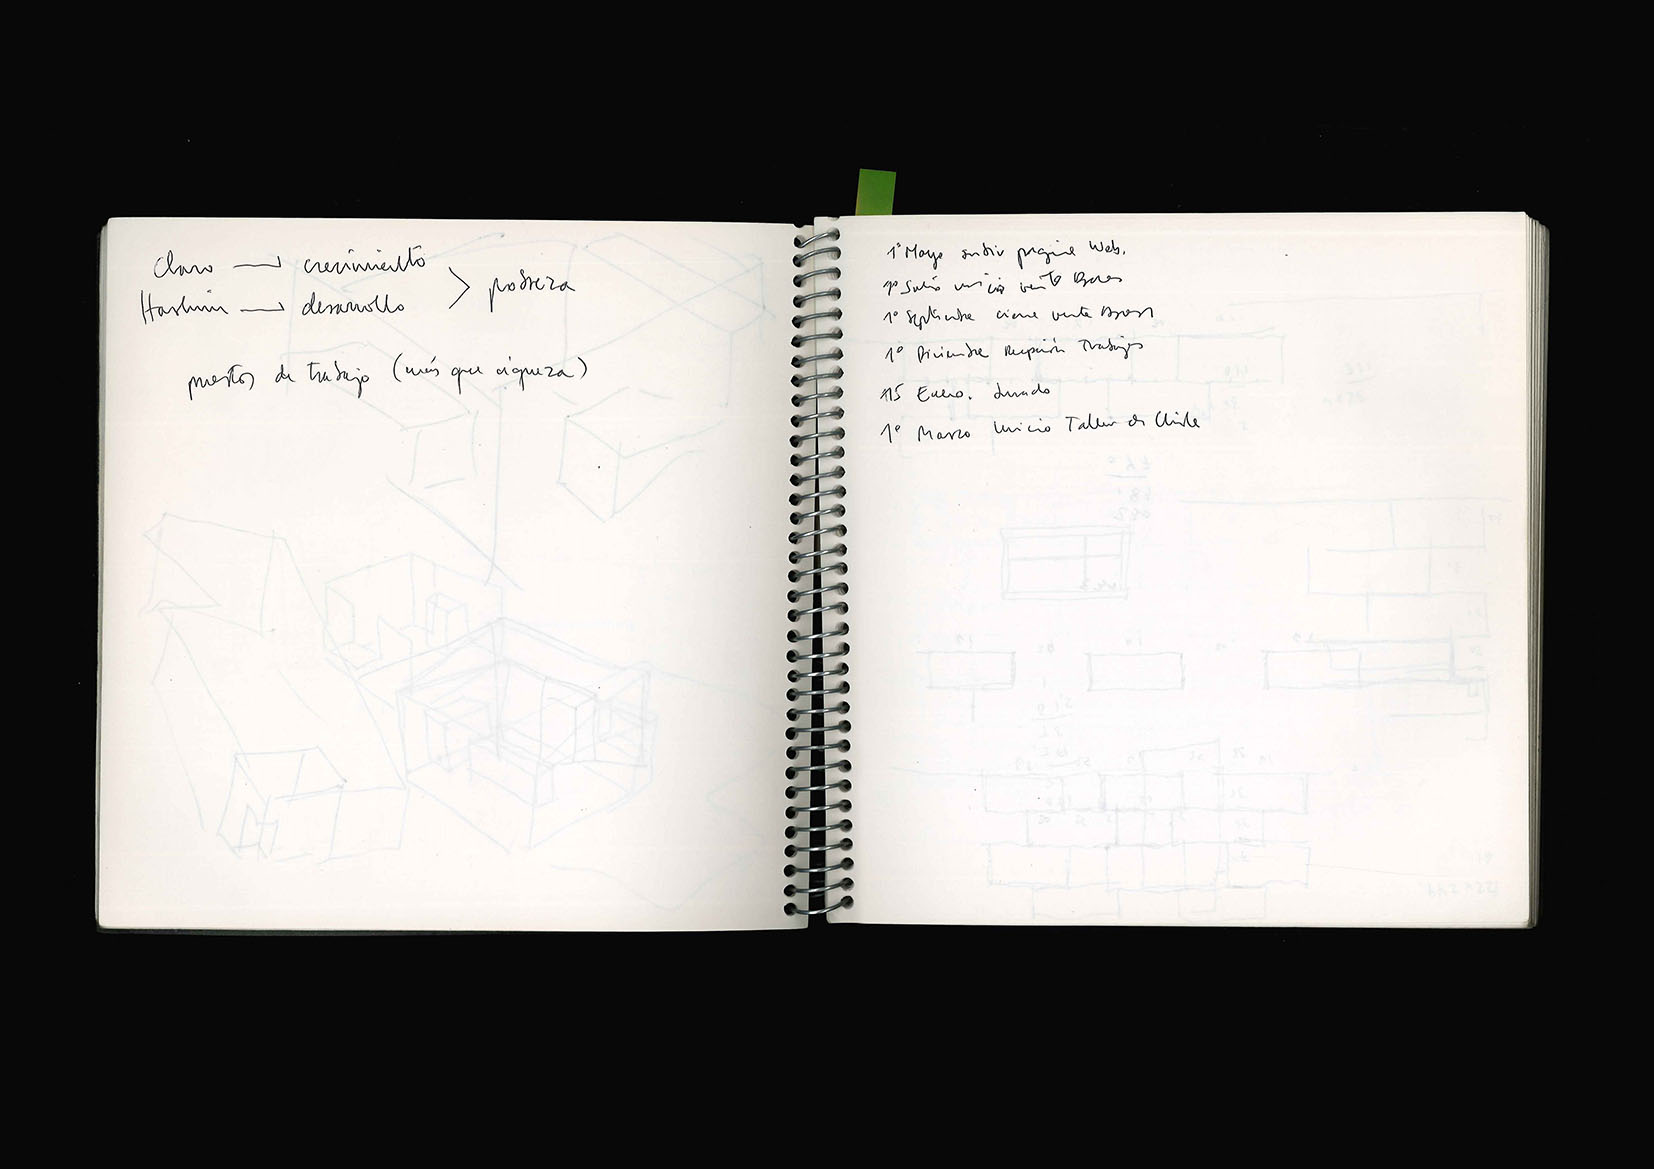 Claro → crecimiento
> pobreza
Hashim → desarrollo
puestos de trabajo (más que riqueza)
1° Mayo subir pagina Web.
1° Julio inicio venta Bases
1° Septiembre cierre venta Bases
1° Diciembre Recepción Trabajos
15 Enero. Jurado
1° Marzo Inicio Taller de Chile